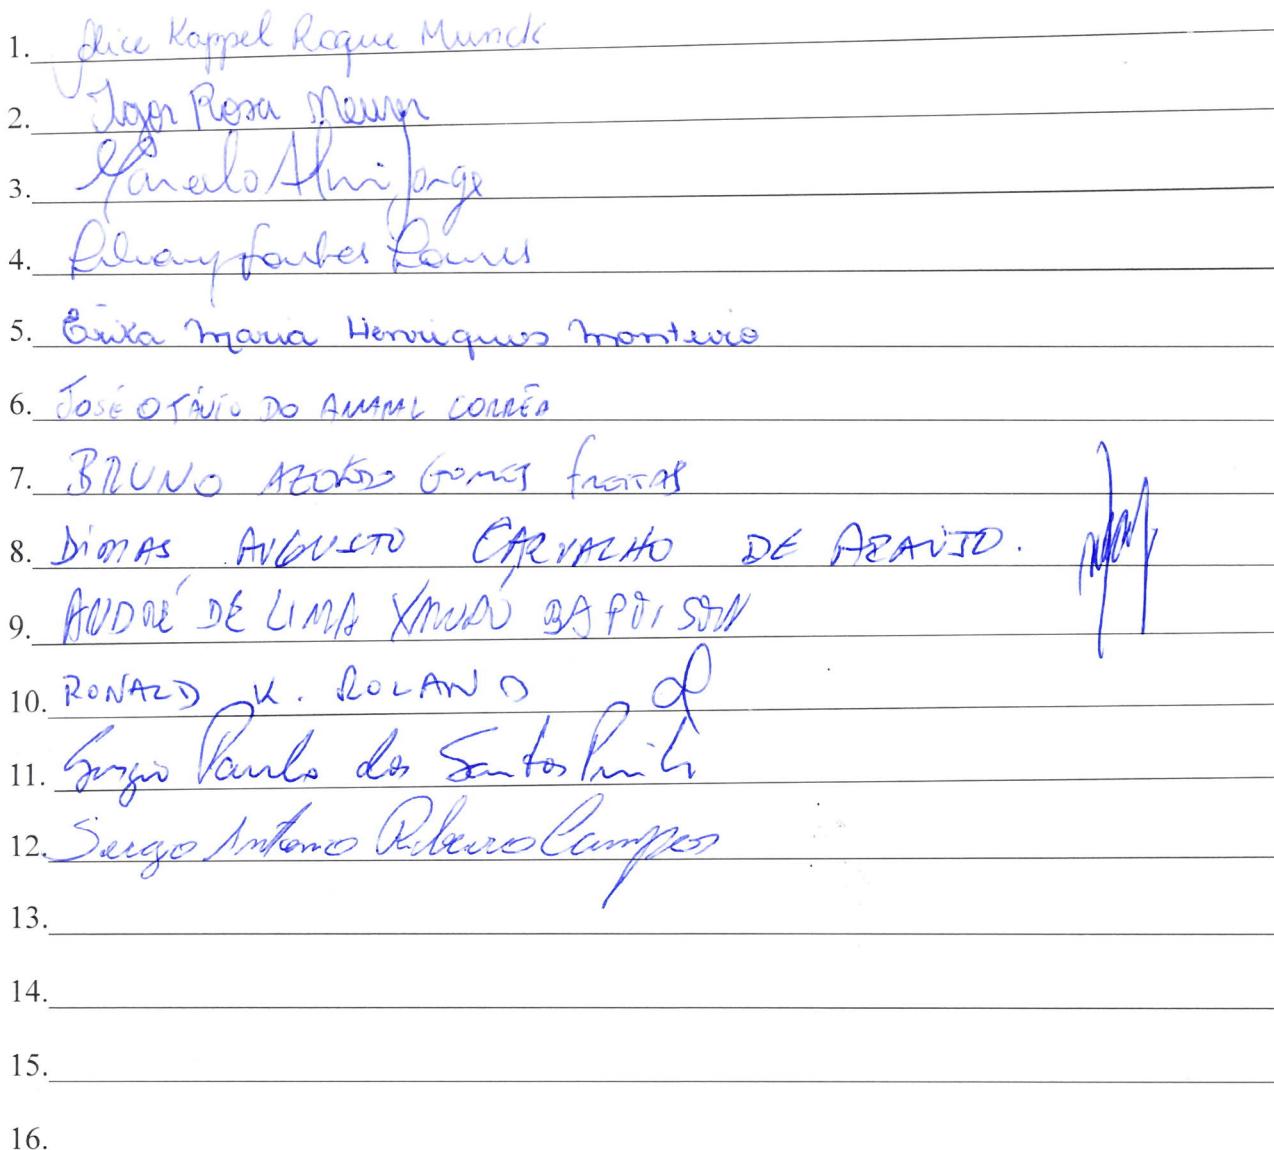 1. Alice Kappel Roque Munck
2. Igor Rosa Meurer
3. Marcelo Alvim Jorge
4. Liliany Fontes Loures
5. Érika Maria Henriques Monteiro
6. JOSÉ OTÁVIO DO AMARAL CORRÊA
7. BRUNO AZEVEDO GOMES FREITAS
8. DIMAS AUGUSTO CARVALHO DE ARAÚJO.
9. ANDRÉ DE LIMA
10. RONALD K. ROLAND
11. Sergio Paulo dos Santos
12. Sergio Antonio Ribeiro Campos
13.
14.
15.
16.